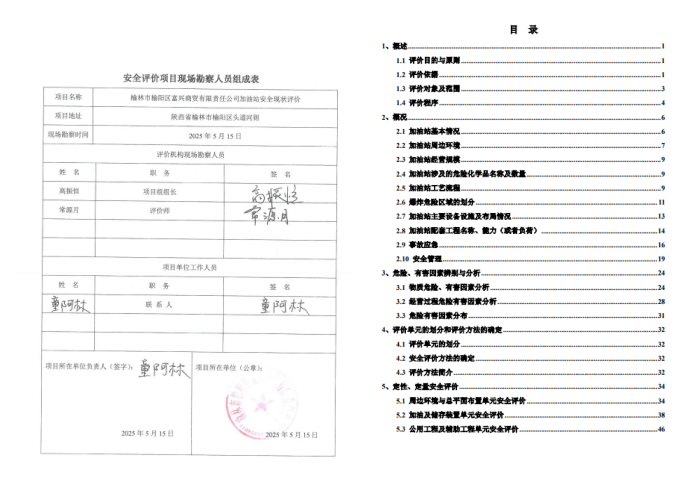 安全评价项目现场勘察人员组成表
项目名称 榆林市榆阳区富兴商贸有限责任公司加油站安全现状评价
项目地址 陕西省榆林市榆阳区头道河则
现场勘察时间 2025 年 5 月 15 日
评价机构现场勘察人员
姓 名 职 务 签 名
高振恒 项目组组长 高振恒
常源月 评价师 常源月
项目单位工作人员
姓 名 职 务 签 名
童阿林 联 系 人 童阿林
项目所在单位负责人（签字）： 童阿林 项目所在单位（公章）：
2025 年 5 月 15 日 2025 年 5 月 15 日
目 录
1、概述 1
1.1 评价目的与原则 1
1.2 评价依据 1
1.3 评价对象及范围 3
1.4 评价程序 4
2、概况 6
2.1 加油站基本情况 6
2.2 加油站周边环境 7
2.3 加油站经营规模 9
2.4 加油站涉及的危险化学品名称及数量 9
2.5 加油站工艺流程 9
2.6 爆炸危险区域的划分 11
2.7 加油站主要设备设施及布局情况 13
2.8 加油站配套工程名称、能力（或者负荷） 14
2.9 事故应急 16
2.10 安全管理 19
3、危险、有害因素辨别与分析 24
3.1 物质危险、有害因素分析 24
3.2 经营过程危险有害因素分析 28
3.3 危险有害因素分布 31
4、评价单元的划分和评价方法的确定 32
4.1 评价单元的划分 32
4.2 安全评价方法的确定 32
4.3 评价方法简介 32
5、定性、定量安全评价 34
5.1 周边环境与总平面布置单元安全评价 34
5.2 加油及储存装置单元安全评价 38
5.3 公用工程及辅助工程单元安全评价 46